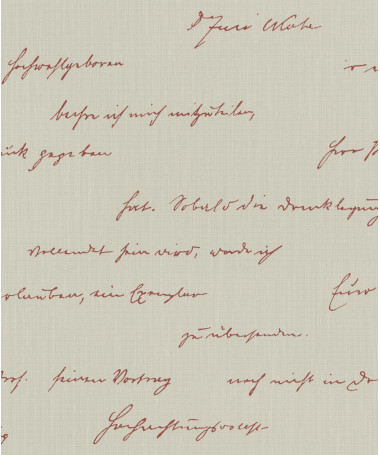 Hochwohlgeboren
beehre ich mich mitzuteilen,
gegeben
hat. Sobald die Drucklegung
vollendet sein wird, werde ich
erlauben, ein Exemplar Euer
zu übersenden.
Prof. seinen Vortrag noch nicht in Dr
Hochachtungsvollst